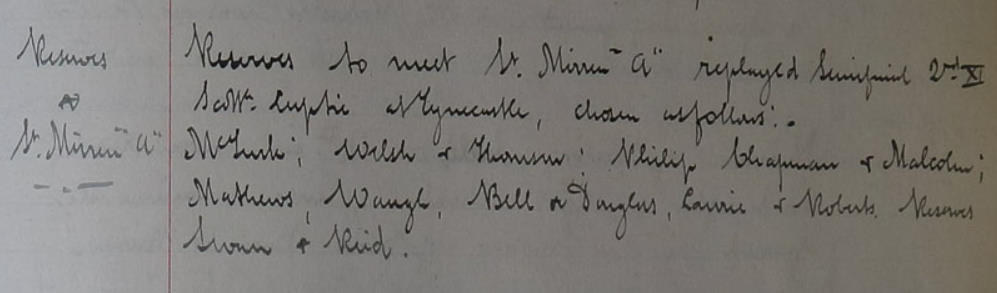 Reserves
v
St. Mirren "A"
Reserves to meet St. Mirren "A" replayed Semifinal 2nd XI
Scott. Cuptie at Tynecastle, chosen as follows:-
McTurk; Welsh & Thomson; Philip Chapman & Malcolm;
Mathews, Waugh, Bell or Douglas, Lawrie & Roberts. Reserves
Swan & Reid.